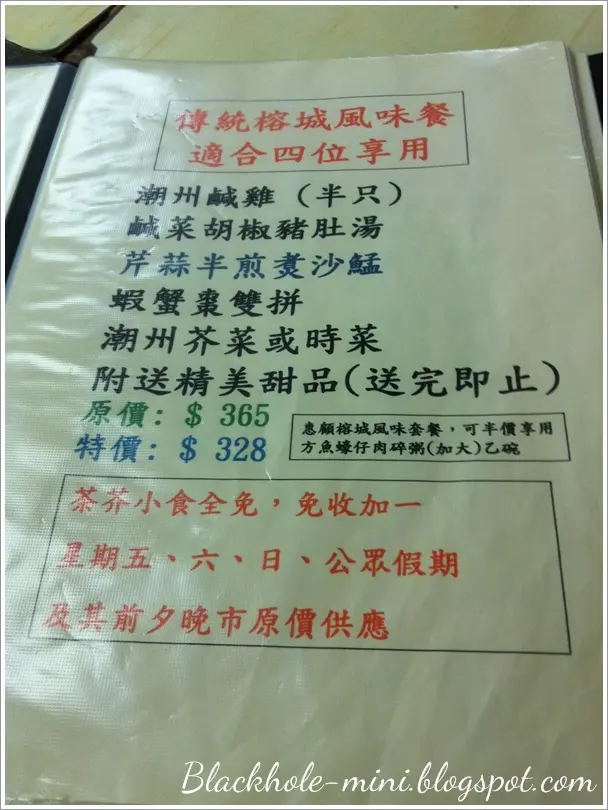 傳統榕城風味餐
適合四位享用
潮州鹹雞（半只）
鹹菜胡椒豬肚湯
芹蒜半煎煑沙鯭
蝦蟹棗雙拼
潮州芥菜或時菜
附送精美甜品(送完即止)
原價: $ 365
特價: $ 328
惠顧榕城風味套餐，可半價享用
方魚蠔仔肉碎粥(加大)乙碗
茶芥小食全免，免收加一
星期五、六、日、公眾假期
及其前夕晚市原價供應
Blackhole-mini.blogspot.com